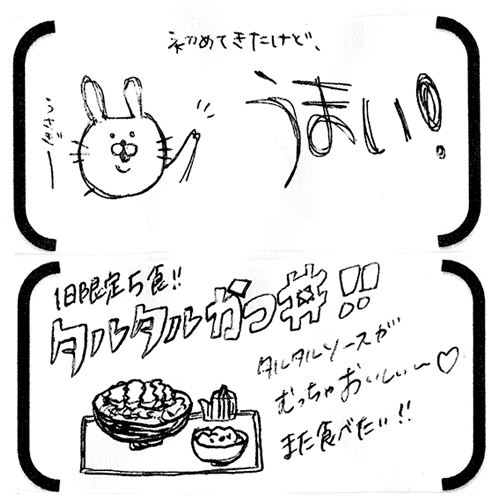 初めてきたけど、
うまい!
うさぎー
1日限定5食!!
タルタルがつ丼!!
タルタルソースが
むっちゃおいしぃ～♡
また食べたい!!